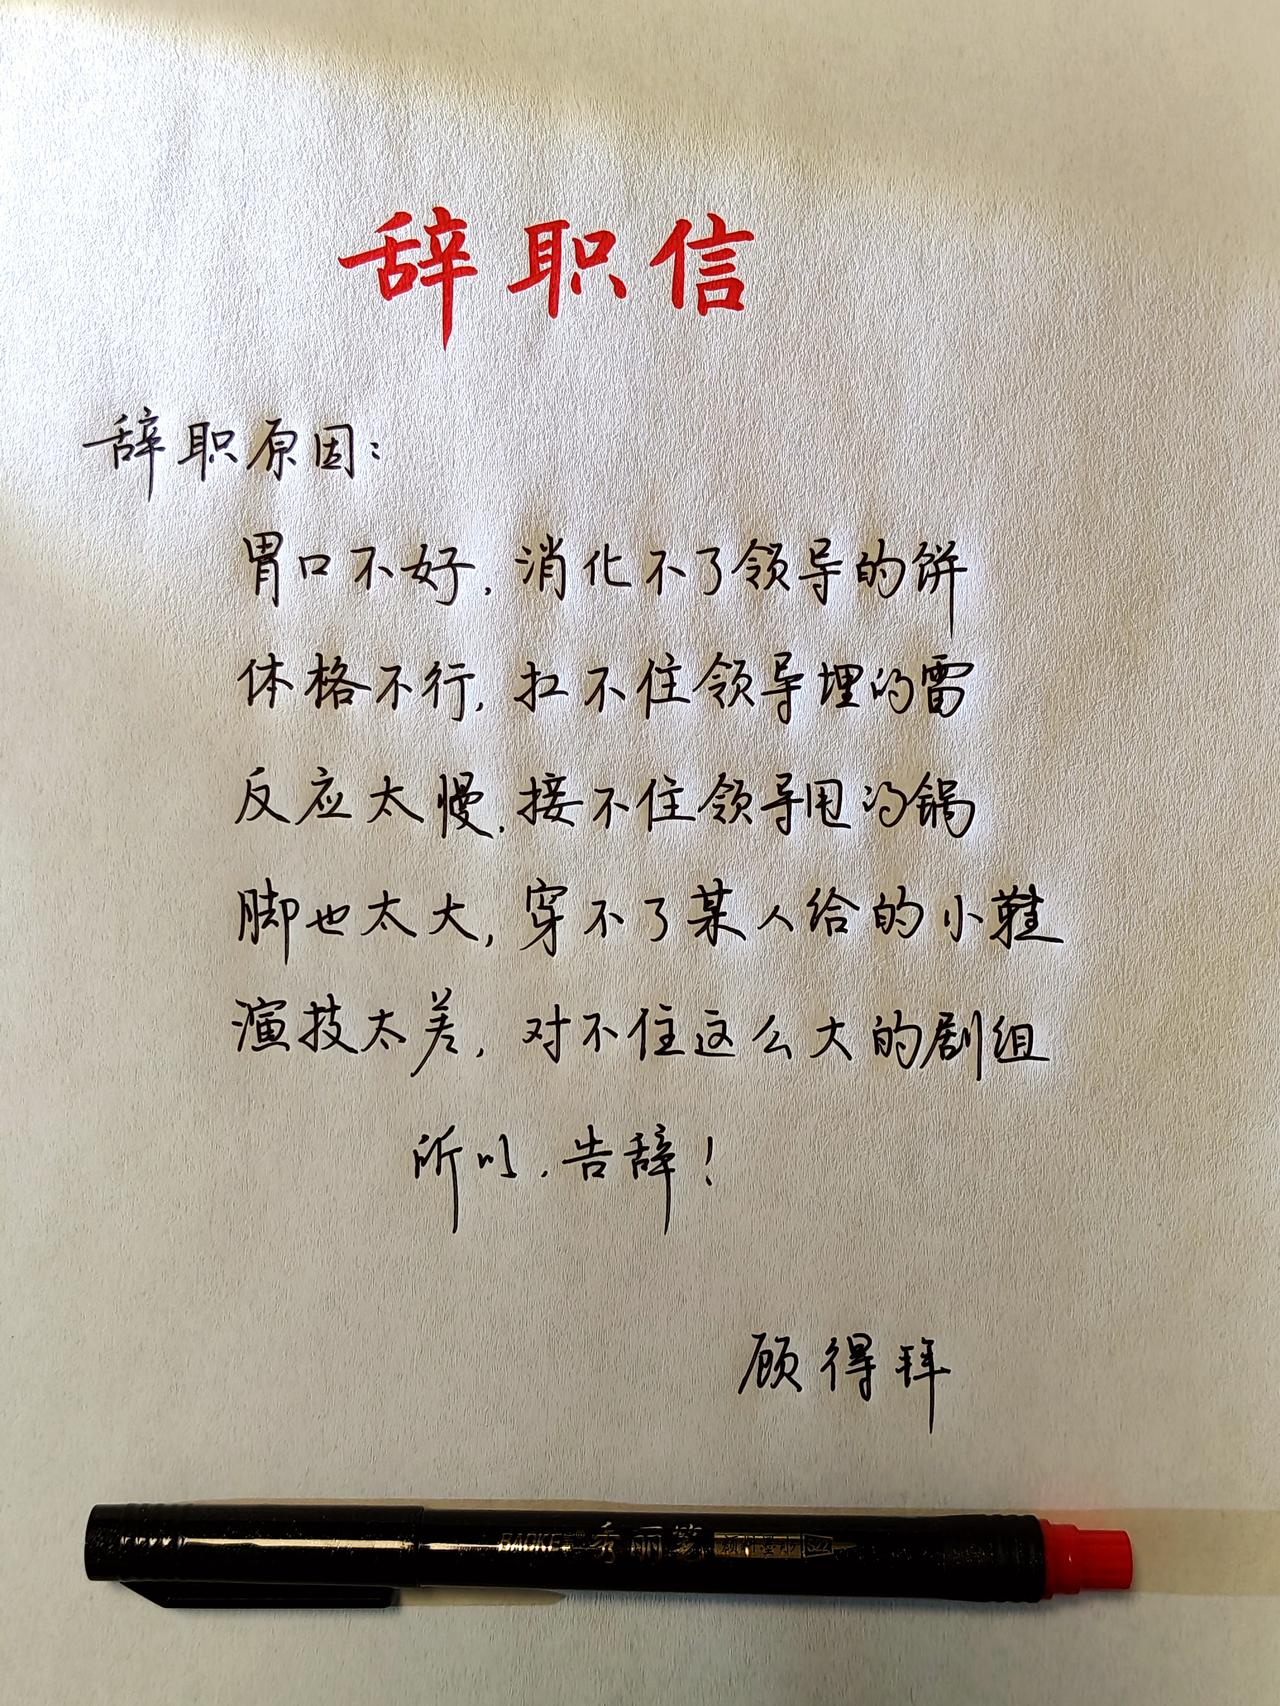 辞职信
辞职原因：
胃口不好，消化不了领导的饼
体格不行，扛不住领导埋的雷
反应太慢，接不住领导甩的锅
脚也太大，穿不了某人给的小鞋
演技太差，对不住这么大的剧组
所以，告辞！
顾得拜
BAOKE 秀丽笔 S22